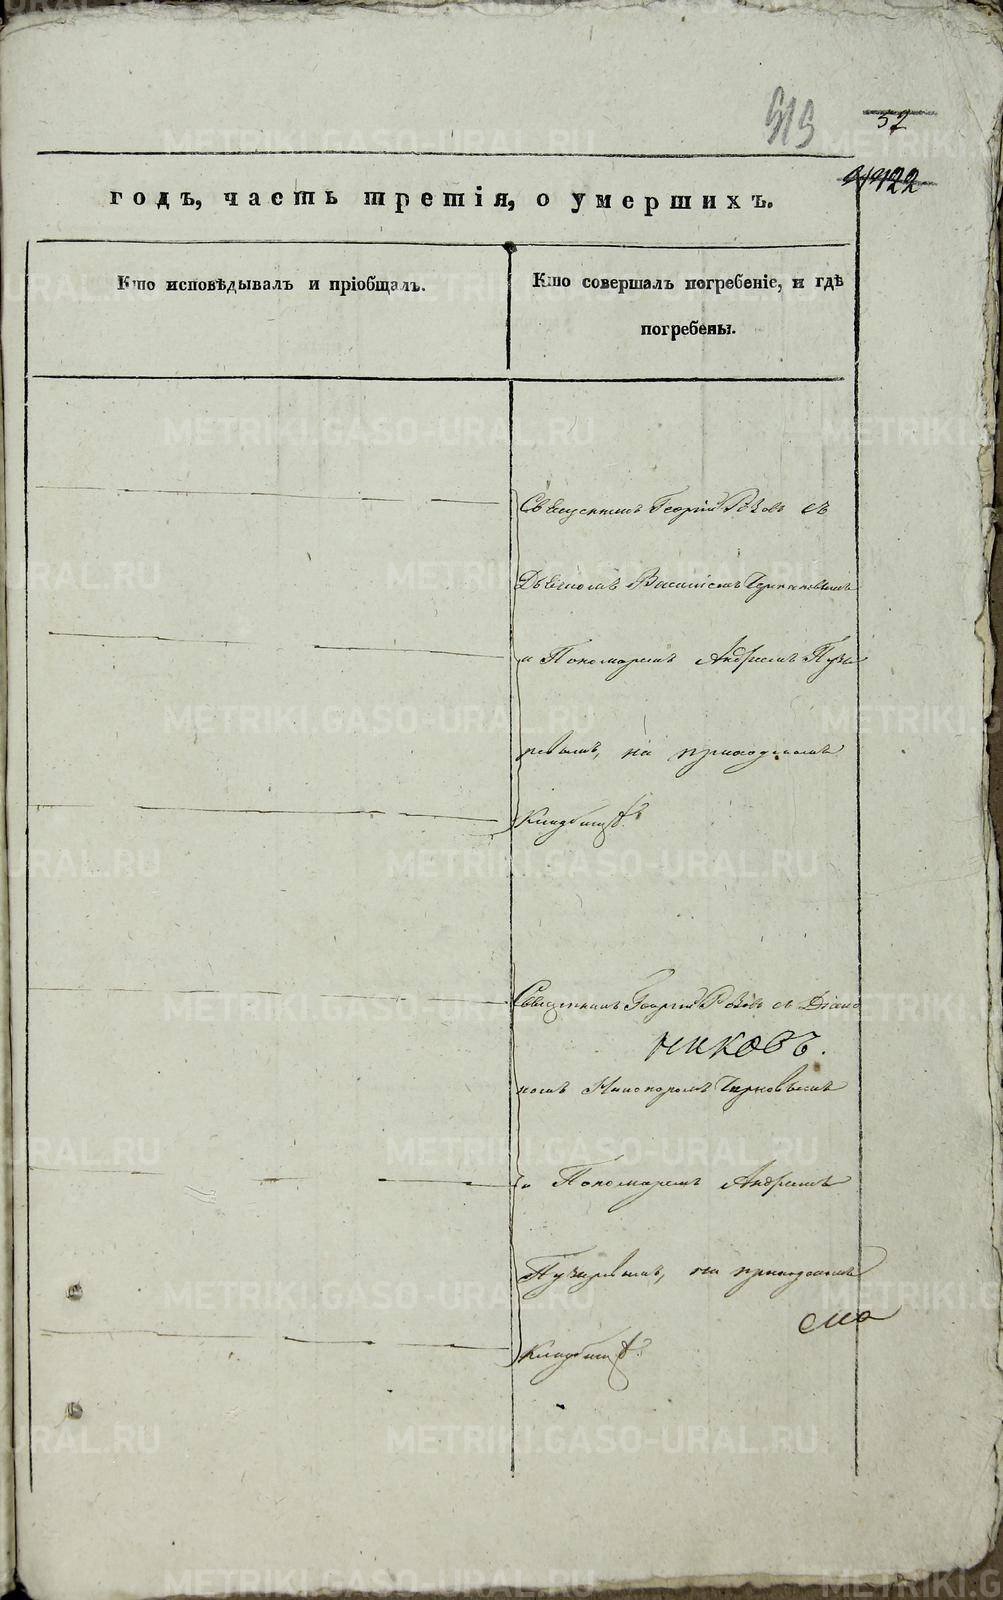 513
52
122
годъ, часть третія, о умершихъ.
Кто исповѣдывалъ и пріобщалъ.
Кто совершалъ погребеніе, и гдѣ
погребены.
Священникъ Георгій с
Дьякономъ Василіемъ
и Пономаремъ Андреемъ Пузы
ревымъ, на приходскомъ
Кладбищѣ.
Священникъ Георгій съ Діако
никовъ.
номъ Никаноромъ
и Пономаремъ Андреемъ
Пузыревымъ, на приходскомъ
Кладбищѣ.
METRIKI.GASO-URAL.RU